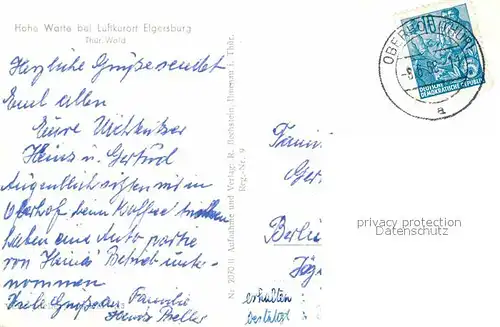 Hohe Warte bei Luftkurort Elgersburg
Thür. Wald
Herzliche Grüße sendet
Euch allen
Eure
Heinz u. Gertrud
Augenblicklich sitzen wir in
Oberhof beim Kaffee trinken
haben eine Auto partie
von Heinz' Betrieb unter-
nommen
Viele Grüße an Familie
Heinz
Nr. 2070 H Aufnahme und Verlag: R. Bechstein, Ilmenau i. Thür.
Reg.-Nr. 9
DEUTSCHE
DEMOKRATISCHE REPUBLIK
a
Fami
Ger
Berli
Jäg
erhalten :
privacy protection
Datenschutz